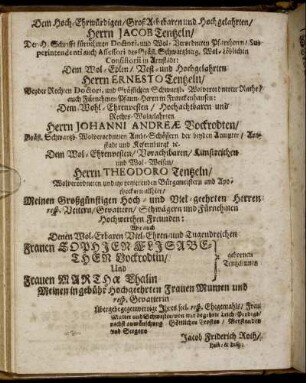 Dem Hoch-Ehrwürdigen/ Groß-Achtbaren und Hochgelahrten/
Herrn JACOB Tentzeln/
Der H. Schrifft fürnehmen Doctori, und Wol-Verordneten Pfarrherrn/
perintendenti auch Assessori des Gräfl. Schwartzburg. Wol-löblichen
Consistorii in Arnstadt;
Dem Wol-Edlen/ Vest- und Hochgelahrten
Herrn ERNESTO Tentzeln/
Beyder Rechten Doctori, und Gräflichen Schwartzb. Wolverordneten Rathe/
auch Fürnehmen Pfann-Herrn in Franckenhausen;
Dem Wohl-Ehrenvesten/ Hochachtbaren und
Rechts-Wolgelahrten
Herrn JOHANNI ANDREÆ Bockrodten/
Gräfl. Schwartzb. Wolverordneten Amts-Schössern der beyden Aempter/
stadt und Käfernburg ꝛc.
Dem Wol-Ehrenvesten/ Vorachtbaren/ Kunstreichen
und Wol-Weisen/
Herrn THEODORO Tentzeln/
Wolverordneten und
Bürgemeistern und Apo-
theckern allhier/
Meinen Großgünstigen Hoch- und Viel-geehrten Herren
resp. Vettern/ Gevattern/ Schwägern und Fürnehmen
Hochwerthen Freunden:
Wie auch
Denen Wol-Erbaren Viel-Ehren- und Tugendreichen
Frauen SOPHIEN ÆLISABE-
THEN Bockrodtin/
Und
gebornen
Tentzelinnen
Frauen MARTHÆ Thalin
Meinen in gebühr Hochgeehrten Frauen Muhmen und
resp. Gevatterin
Übergebe gegenwertige
resp. Ehegemahls/ Frau
Mutter und Schwester/
Leich-Predigt/
nechst anwünschung Göttlichen Trostes/ Beystandes
und Segens
Jacob Friderich Roth/